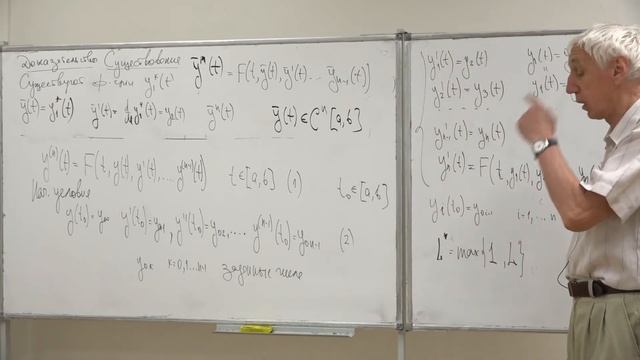 Доказательство Существование
Существуют ф-ции y₁*(t)
ȳⁿ(t) = F(t, ȳ(t), ȳ'(t) ... ȳₙ₋₁(t)]
ȳ(t) = y₁*(t) ȳ'(t) = d/dt y₁*(t) = y₂(t) ȳⁿ(t)
ȳ(t) ∈ Cⁿ[a, b]
y⁽ⁿ⁾(t) = F(t, y(t), y'(t), ... y⁽ⁿ⁻¹⁾(t)) t ∈ [a, b] (1) t₀ ∈ [a, b]
Нач. условия
y(t₀) = y₀₀ y'(t₀) = y₀₁, y''(t₀) = y₀₂, ... y⁽ⁿ⁻¹⁾(t₀) = y₀ₙ₋₁ (2)
y₀ₖ k = 0,1...n-1 заданные числа
y₁'(t) = y₂(t)
y₂'(t) = y₃(t)
y'ₙ₋₁(t) = yₙ(t)
yₙ'(t) = F(t, y₁(t), y
yᵢ(t₀) = y₀ᵢ₋₁ i = 1, ... n
L* = max{1, L}
y₁(t) =
ȳ₁(t) =